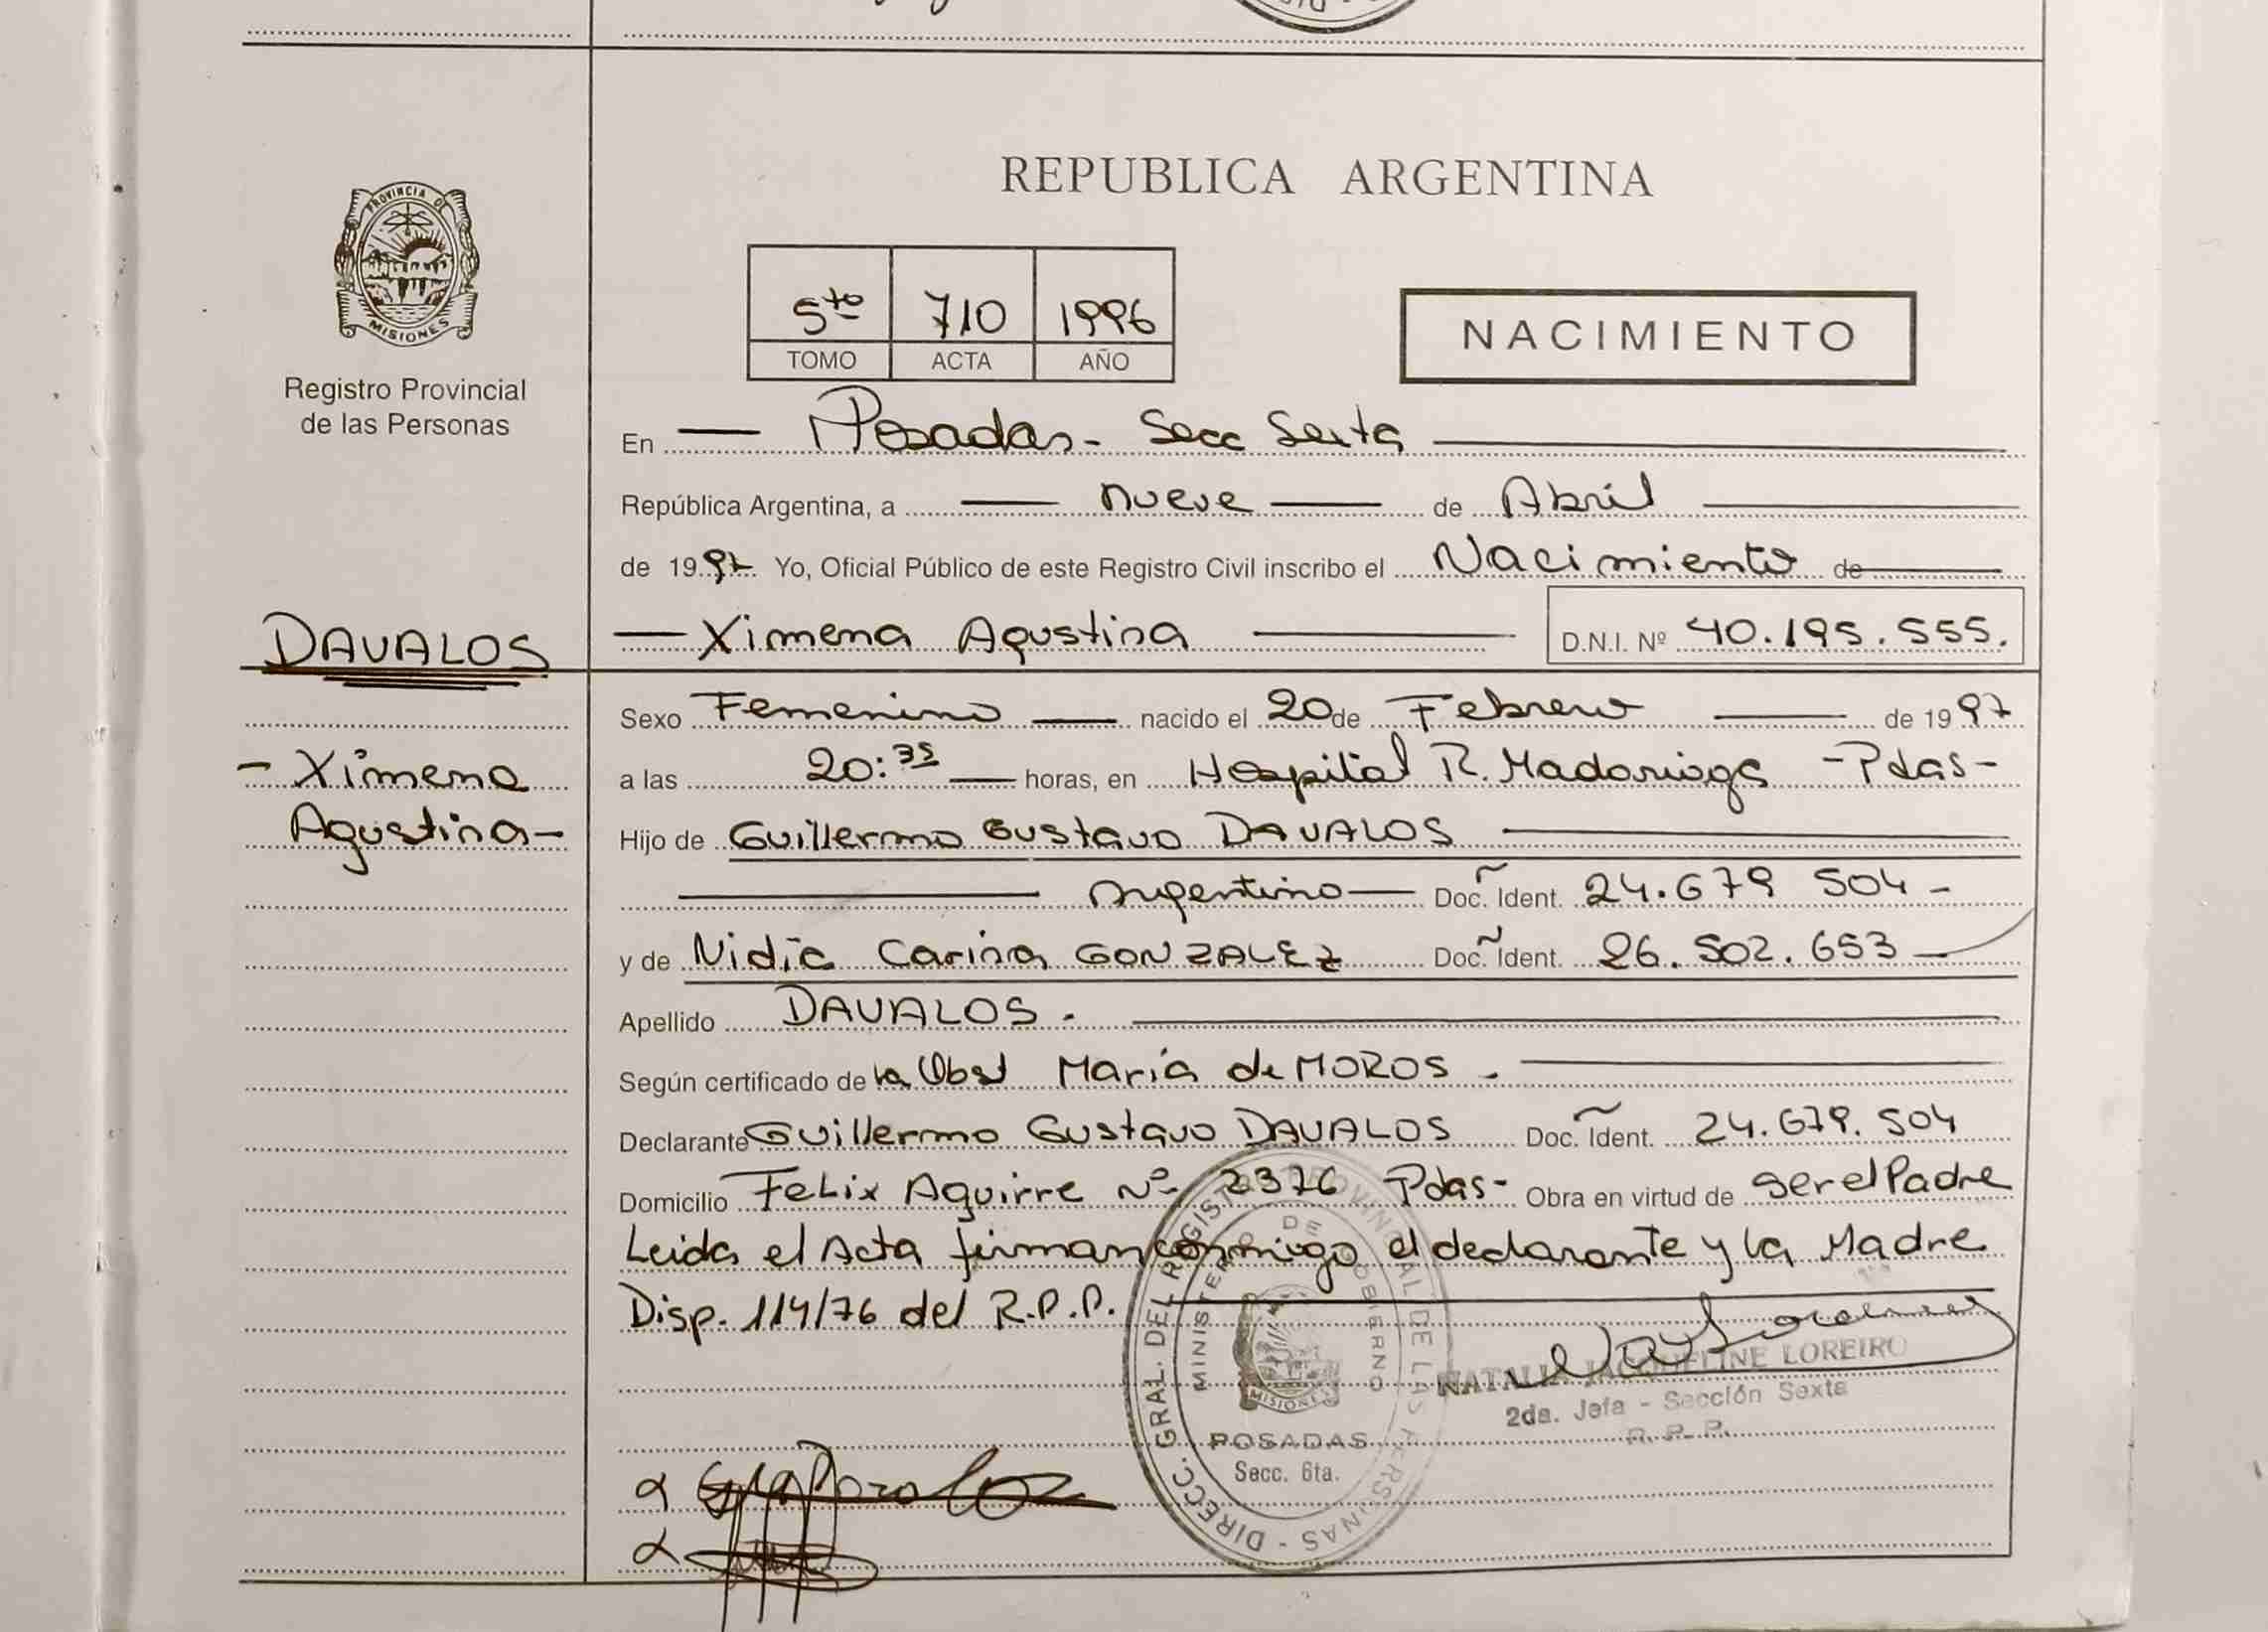 PROVINCIA DE
MISIONES
Registro Provincial
de las Personas
REPUBLICA ARGENTINA
5to 710 1996
TOMO ACTA AÑO
NACIMIENTO
En Posadas - Secc Sexta
República Argentina, a nueve de Abril
de 1997 Yo, Oficial Público de este Registro Civil inscribo el Nacimiento de
DAVALOS
Ximena Agustina D.N.I. Nº 40.195.555.
Sexo Femenino nacido el 20 de Febrero de 1997
- Ximena
Agustina -
a las 20:35 horas, en Hospital R. Madariaga - Pdas -
Hijo de Guillermo Gustavo DAVALOS
Argentino Doc. Ident. 24.679 504 -
y de Nidia Carina GONZALEZ Doc. Ident. 26.502.653
Apellido DAVALOS.
Según certificado de la Obst María de MOROS.
Declarante Guillermo Gustavo DAVALOS Doc. Ident. 24.679.504
Domicilio Felix Aguirre Nº 2376 Pdas - Obra en virtud de ser el Padre
Leida el Acta firman conmigo el declarante y la Madre
Disp. 114/76 del R.P.P.
DIRECC. GRAL. DEL REGISTRO PROVINCIAL DE LAS PERSONAS
MINISTERIO DE GOBIERNO
MISIONES
POSADAS
Secc. 6ta.
NATALIA JACQUELINE LOREIRO
2da. Jefa - Sección Sexta
R. P. P.